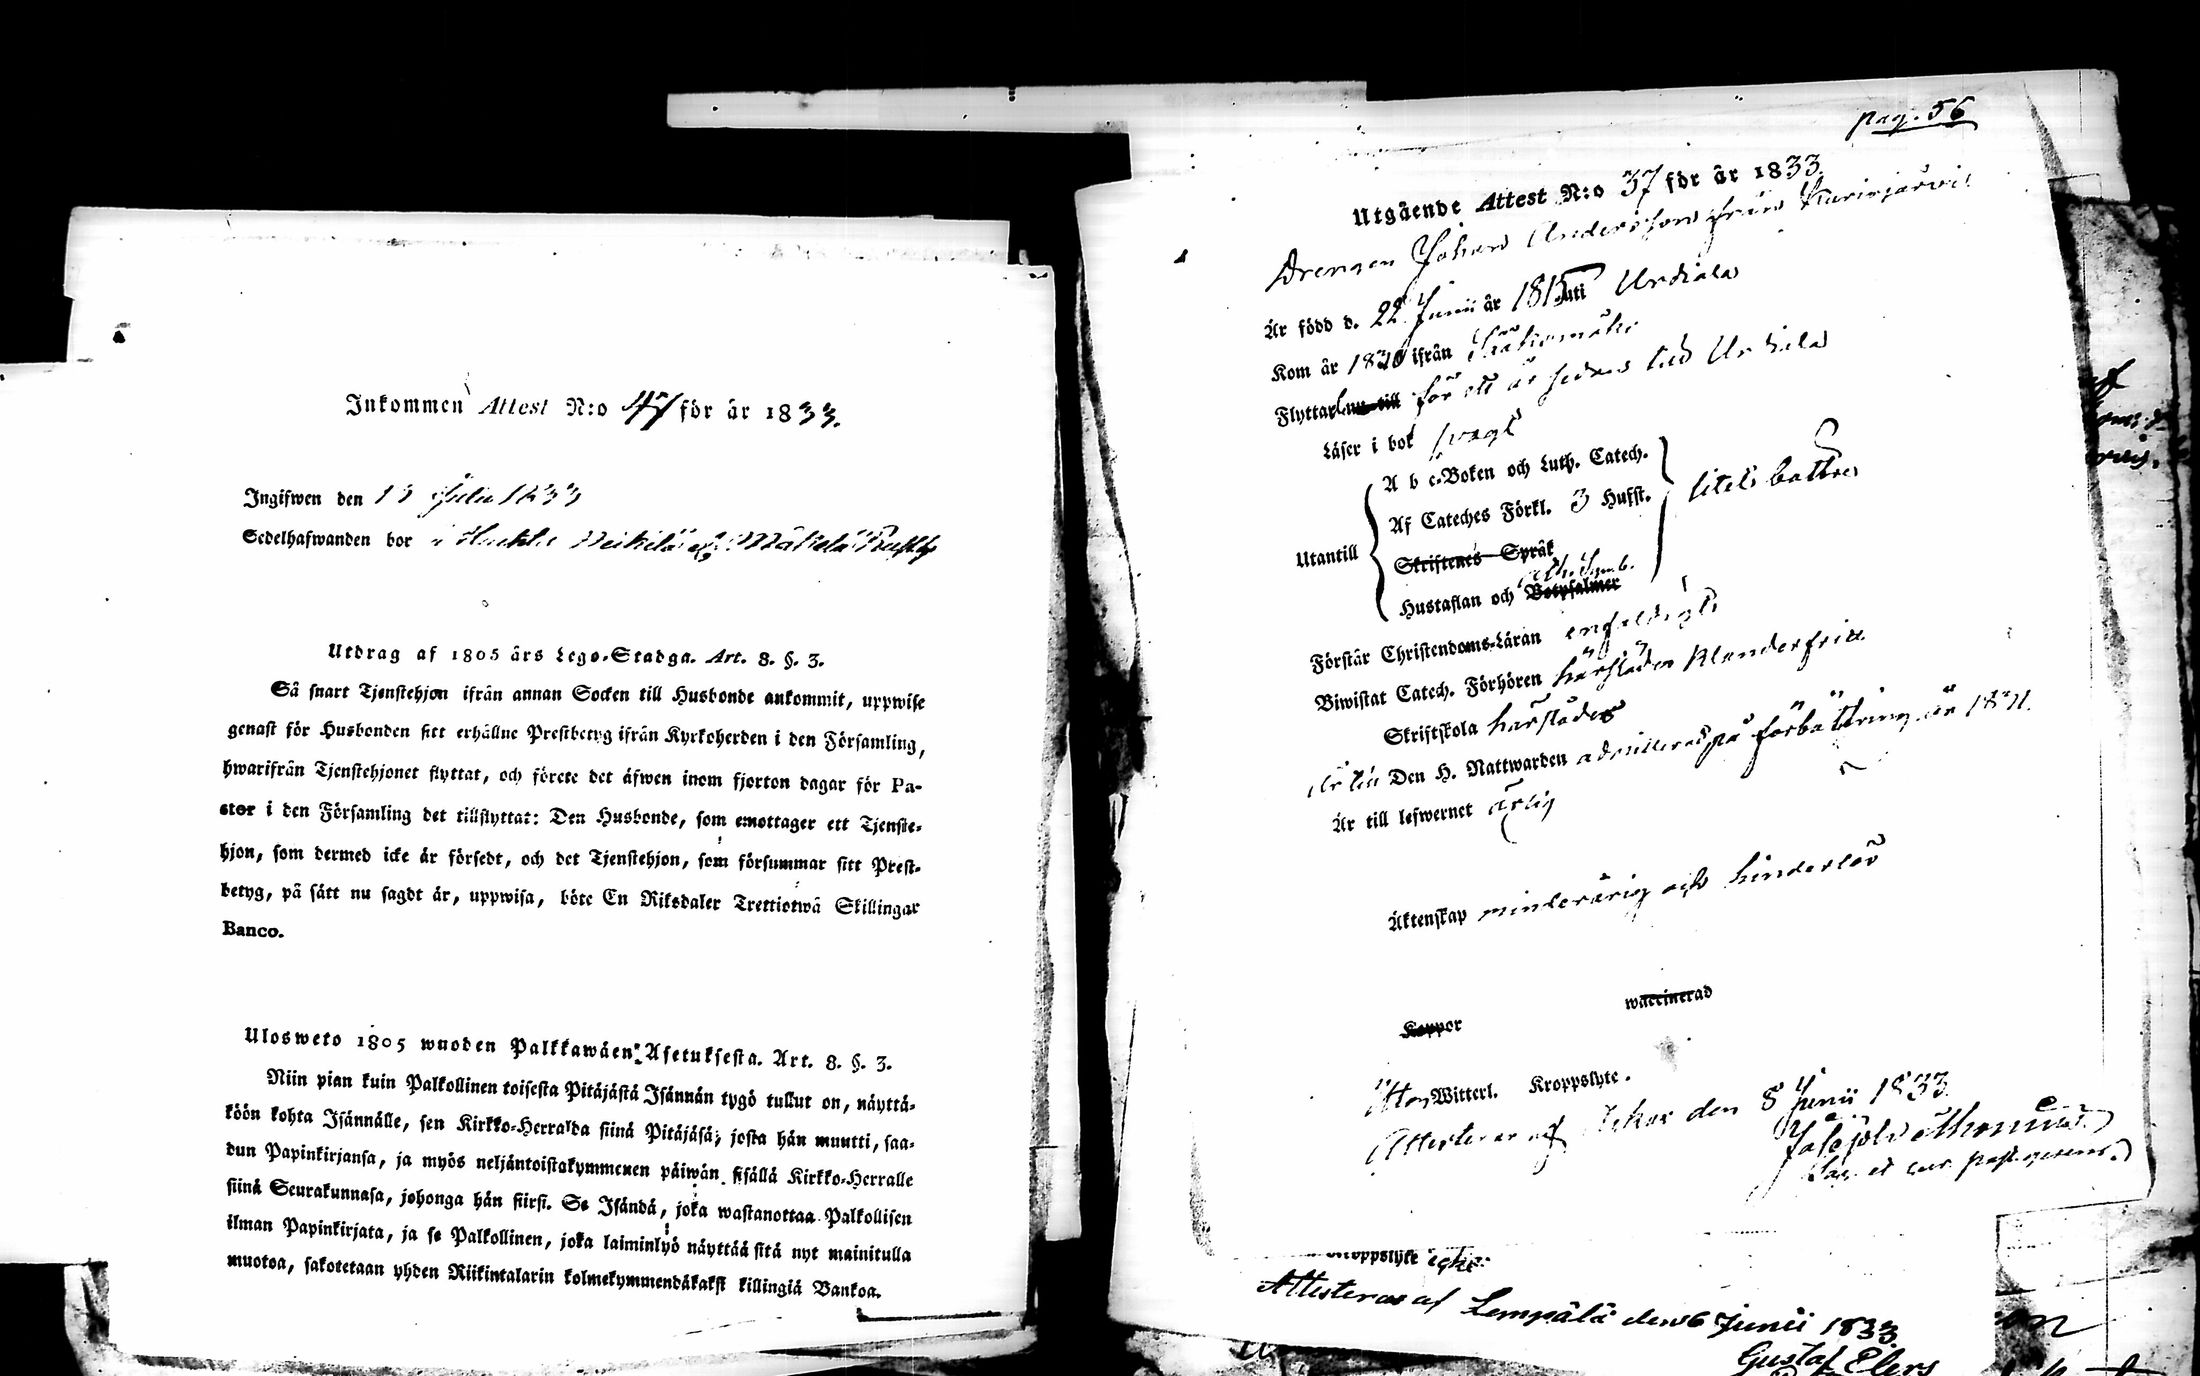 Inkommen Attest N:o 47 för år 1833.
Ingifwen den 13 Julii 1833
Sedelhafwanden bor i Huhti Heikilä Mäkelä
Utdrag af 1805 års Lego-Stadga. Art. 8. §. 3.
Så snart Tjenstehjon ifrån annan Socken till Husbonde ankommit, uppwise
genast för Husbonden sitt erhållne Prestbetyg ifrån Kyrkoherden i den Församling,
hwarifrån Tjenstehjonet flyttat, och förete det äfwen inom fjorton dagar för Pa-
stor i den Församling det tillflyttat: Den Husbonde, som emottager ett Tjenste-
hjon, som dermed icke är försedt, och det Tjenstehjon, som försummar sitt Prest-
betyg, på sätt nu sagdt är, uppwisa, böte En Riksdaler Trettiotwå Skillingar
Banco.
Ulosweto 1805 wuoden Palkkawäen Asetuksesta. Art. 8. §. 3.
Niin pian kuin Palkollinen toisesta Pitäjästä Isännän tygö tullut on, näyttä-
köön kohta Isännälle, sen Kirkko-Herralda siinä Pitäjäsä, josta hän muutti, saa-
dun Papinkirjansa, ja myös neljäntoistakymmenen päiwän sisällä Kirkko-Herralle
siinä Seurakunnasa, johonga hän siirsi. Se Isändä, joka wastanottaa Palkollisen
ilman Papinkirjata, ja se Palkollinen, joka laiminlyö näyttää sitä nyt mainitulla
muotoa, sakotetaan yhden Riikintalarin kolmekymmendäkaksi killingiä Bankoa.
pag. 56
Utgående Attest N:o 37 för år 1833.
Drengen Johan Andersson från Kurisjärvi
Är född d. 22 Junii år 1815 uti Urdiala
Kom år 1830 ifrån
Flyttar nu till för ett år sedan till Urdiala
Läser i bok swagt
Utantill
A b c-Boken och Luth. Catech.
Af Cateches Förkl. 3 Hufst.
Skriftenes Språk
Hustaflan och Botpsalmer Ath. Symb.
litet battre
Förstår Christendoms-Läran enfaldigt
Biwistat Catech. Förhören härstädes klanderfritt
Skriftskola härstädes
Är till Den H. Nattwarden admitterad på förbättring år 1831.
Är till lefwernet ärlig
Äktenskap minderårig och hinderlös
Koppor waccinerad
Utan Witterl. Kroppslyte.
Attesterar af Ackas den 8 Junii 1833.
Kroppslyte icke
Attesteras af Lempälä den 6 Junii 1833
Gustaf Elers